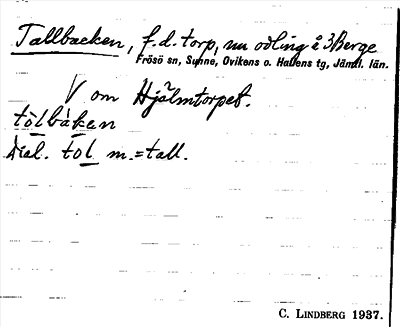 Tallbacken, f.d. torp, nu odling å 3Berge
Frösö sn, Sunne, Ovikens o. Hallens tg, Jämtl. län.
V om Hjälmtorpet.
tòlbàken
Dial. tol m. = tall.
C. LINDBERG 1937.